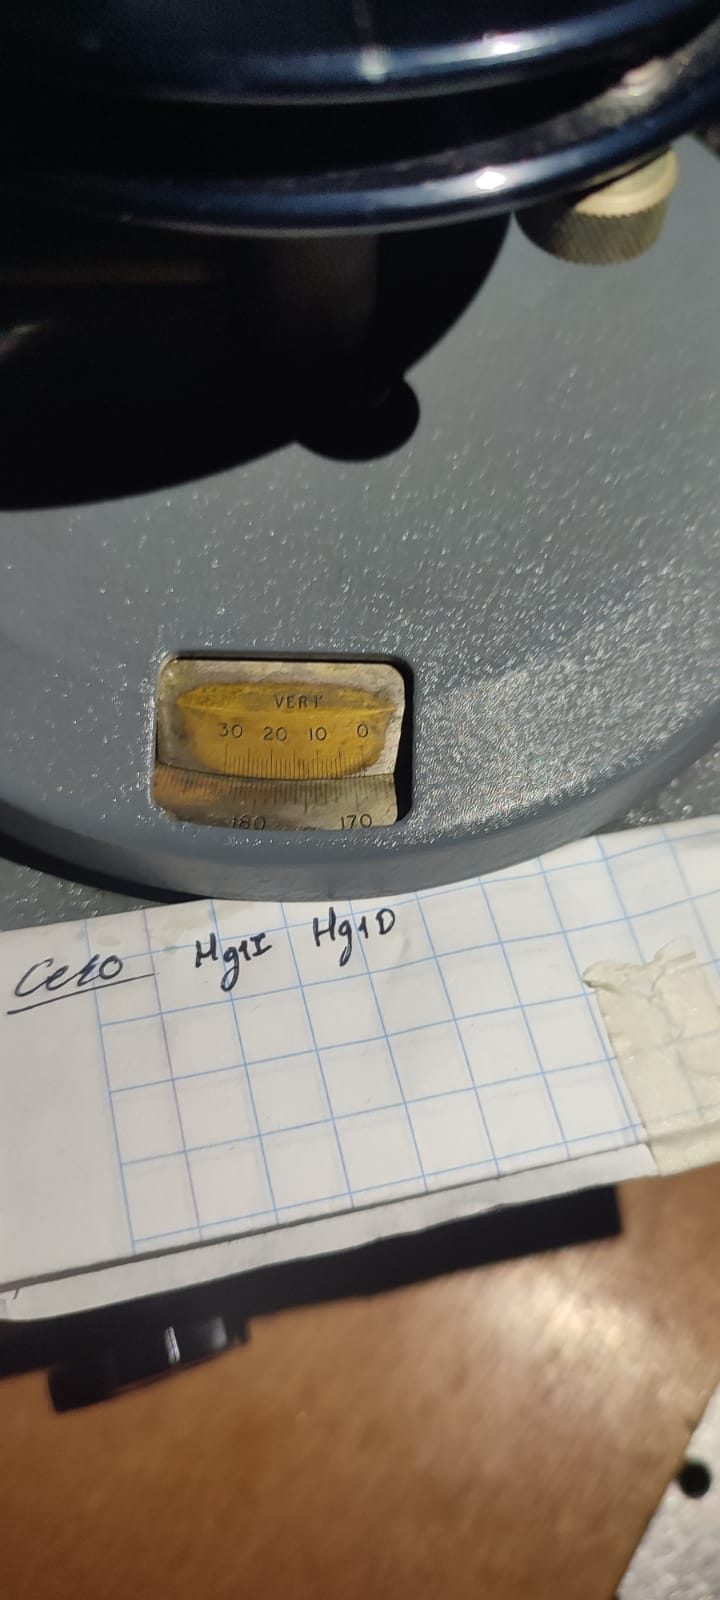 VER 1'
30 20 10 0
180 170
Cero Hg1I Hg1D